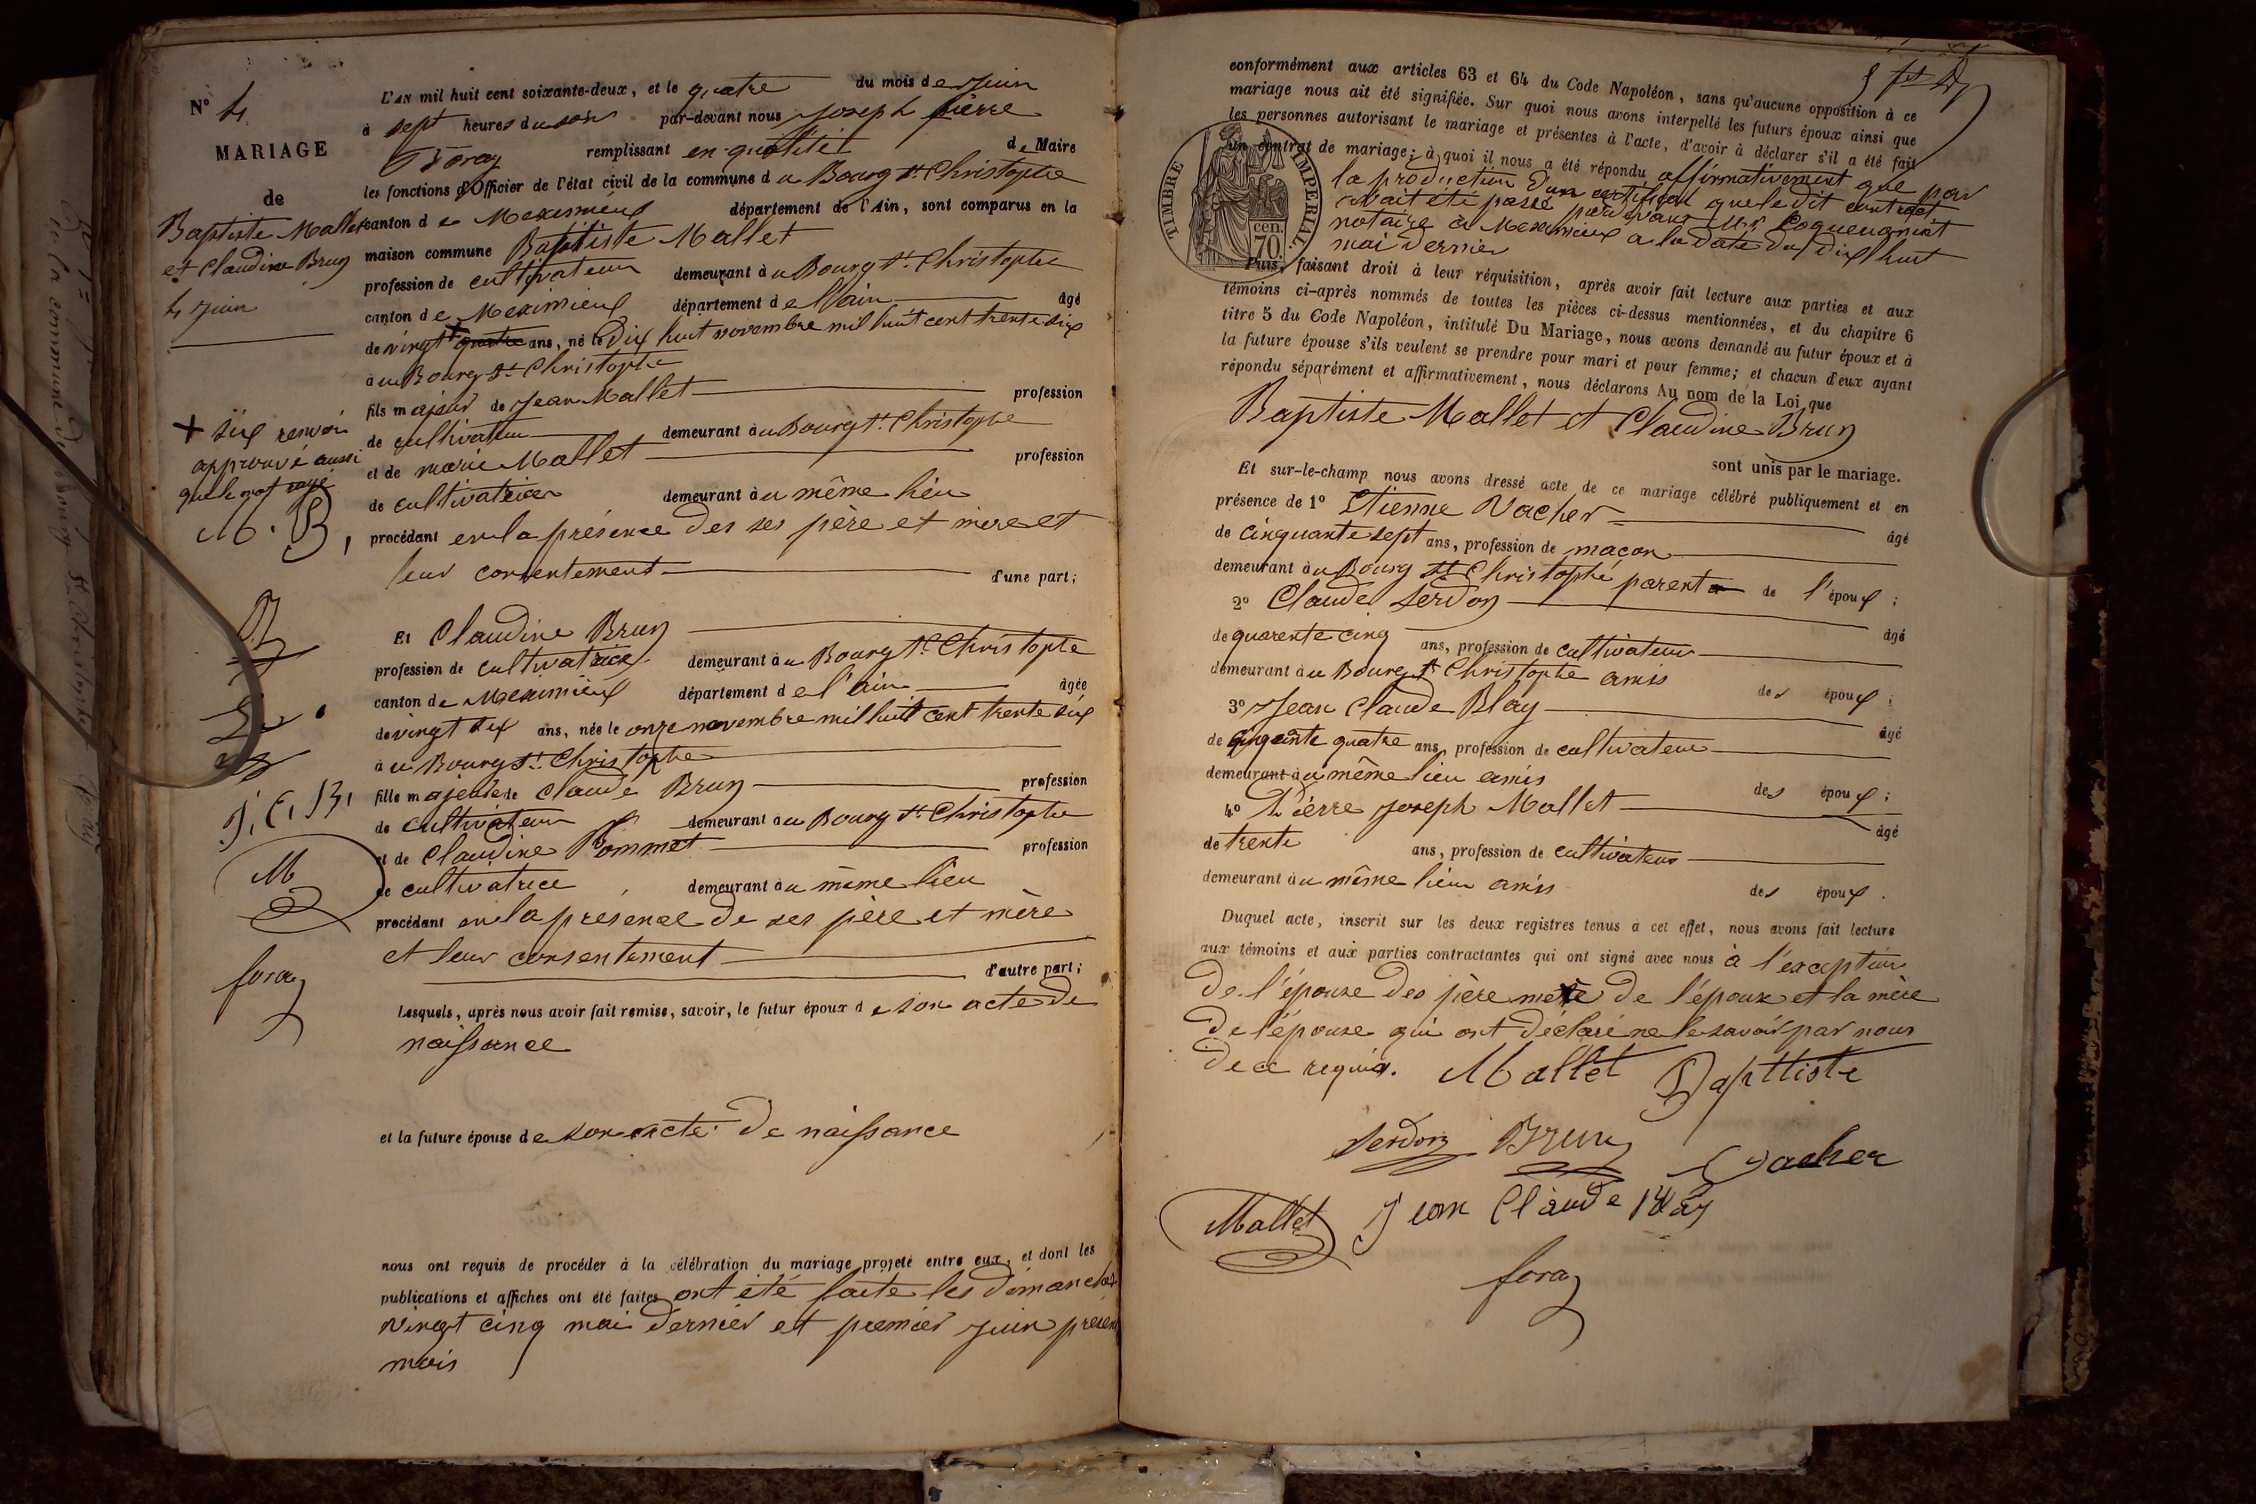 N° 4
MARIAGE
de
Baptiste Mallet
et Claudine Brun
4 Juin
L'AN mil huit cent soixante-deux, et le quatre du mois de Juin
à sept heures du soir par-devant nous Joseph pierre
Foray remplissant en qualité de Maire
les fonctions d'Officier de l'état civil de la commune du Bourg St Christophe
canton de Meximieux département de l'Ain, sont comparus en la
maison commune Baptiste Mallet
profession de cultivateur demeurant àu Bourg St. Christophe
canton de Meximieux département de l'ain âgé
de vingt + quatre ans, né le dix huit novembre mil huit cent trente six
àu Bourg St Christophe
fils majeur de Jean Mallet profession
de cultivateur demeurant àu Bourg St. Christophe
et de marie Mallet profession
de cultivatrice demeurant àu même lieu
procédant en la présence des ses père et mère et
leur consentement d'une part;
+ six renvoi
approuvé aussi
que le mot rayé
M. B,
J. C, B,
M
foray
Et Claudine Brun
profession de cultivatrice demeurant àu Bourg St Christophe
canton de Meximieux département de l'ain âgée
de vingt six ans, née le onze novembre mil huit cent trente six
àu Bourg St. Christophe
fille majeure de Claude Brun profession
de cultivateur demeurant àu Bourg St Christophe
et de Claudine Pommet profession
de cultivatrice, demeurant àu même lieu
procédant en la presence de ses père et mère
et leur consentement
d'autre part;
Lesquels, après nous avoir fait remise, savoir, le futur époux de son acte de
naissance
et la future épouse de son acte de naissance
nous ont requis de procéder à la célébration du mariage projeté entre eux, et dont les
publications et affiches ont été faites ont été faite les dimanches
vingt cinq mai dernier et premier Juin présent
mois
conformément aux articles 63 et 64 du Code Napoléon, sans qu'aucune opposition à ce
mariage nous ait été signifiée. Sur quoi nous avons interpellé les futurs époux ainsi que
les personnes autorisant le mariage et présentes à l'acte, d'avoir à déclarer s'il a été fait
un contrat de mariage; à quoi il nous a été répondu affirmativement que par
la production d'un certificat que le dit contract
avait été passé par devant Mr Coquengniot
notaire à Meximieux a la date du dix huit
mai dernier
TIMBRE IMPERIAL.
70 cen.
Puis, faisant droit à leur réquisition, après avoir fait lecture aux parties et aux
témoins ci-après nommés de toutes les pièces ci-dessus mentionnées, et du chapitre 6
titre 5 du Code Napoléon, intitulé Du Mariage, nous avons demandé au futur époux et à
la future épouse s'ils veulent se prendre pour mari et pour femme; et chacun d'eux ayant
répondu séparément et affirmativement, nous déclarons Au nom de la Loi que
Baptiste Mallet et Claudine Brun
sont unis par le mariage.
Et sur-le-champ nous avons dressé acte de ce mariage célébré publiquement et en
présence de 1° Etienne Vacher
âgé
de cinquante sept ans, profession de maçon
demeurant àu Bourg St Christophe parent de l'époux;
2° Claude Serdon
âgé
de quarente cinq ans, profession de cultivateur
demeurant àu Bourg St Christophe amis des époux;
3° Jean Claude Blay
âgé
de cinqante quatre ans, profession de cultivateur
demeurant àu même lieu amis des époux;
4° Pierre Joseph Mallet
âgé
de trente ans, profession de cultivateur
demeurant àu même lieu amis des époux.
Duquel acte, inscrit sur les deux registres tenus à cet effet, nous avons fait lecture
aux témoins et aux parties contractantes qui ont signé avec nous à l'exception
de l'épouse des père mère de l'époux et la mère
de l'épouse qui ont déclaré ne le savoir par nous
de ce requis. Mallet Bapttiste
Serdon Brun Vacher
Mallet Jean Claude Blay
foray